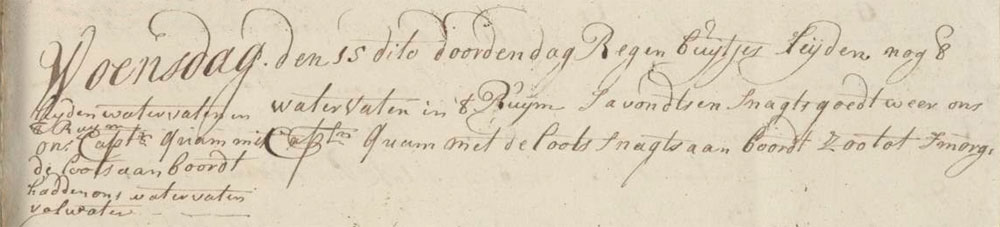 Woensdag. den 15 dito doordendag Regen buÿtjes leÿden nog 8
watervaten in 't Ruÿm Savondtsen Snagts goedt weer ons
Captn Quam met de Loots Snagts aan boordt Zoo tot Smorg:
leÿden watervaten in
't Ruym
ons Captn Quam mit
de loots aan boordt
hadden ons watervaten
vol water